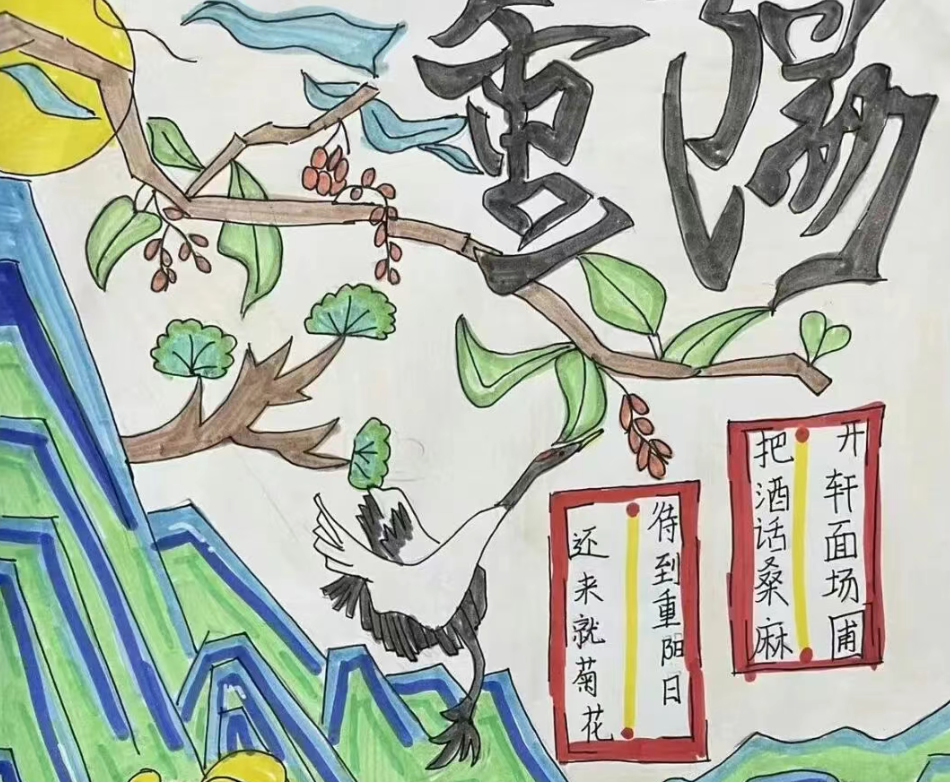 重陽
开轩面场圃
把酒话桑麻
待到重阳日
还来就菊花